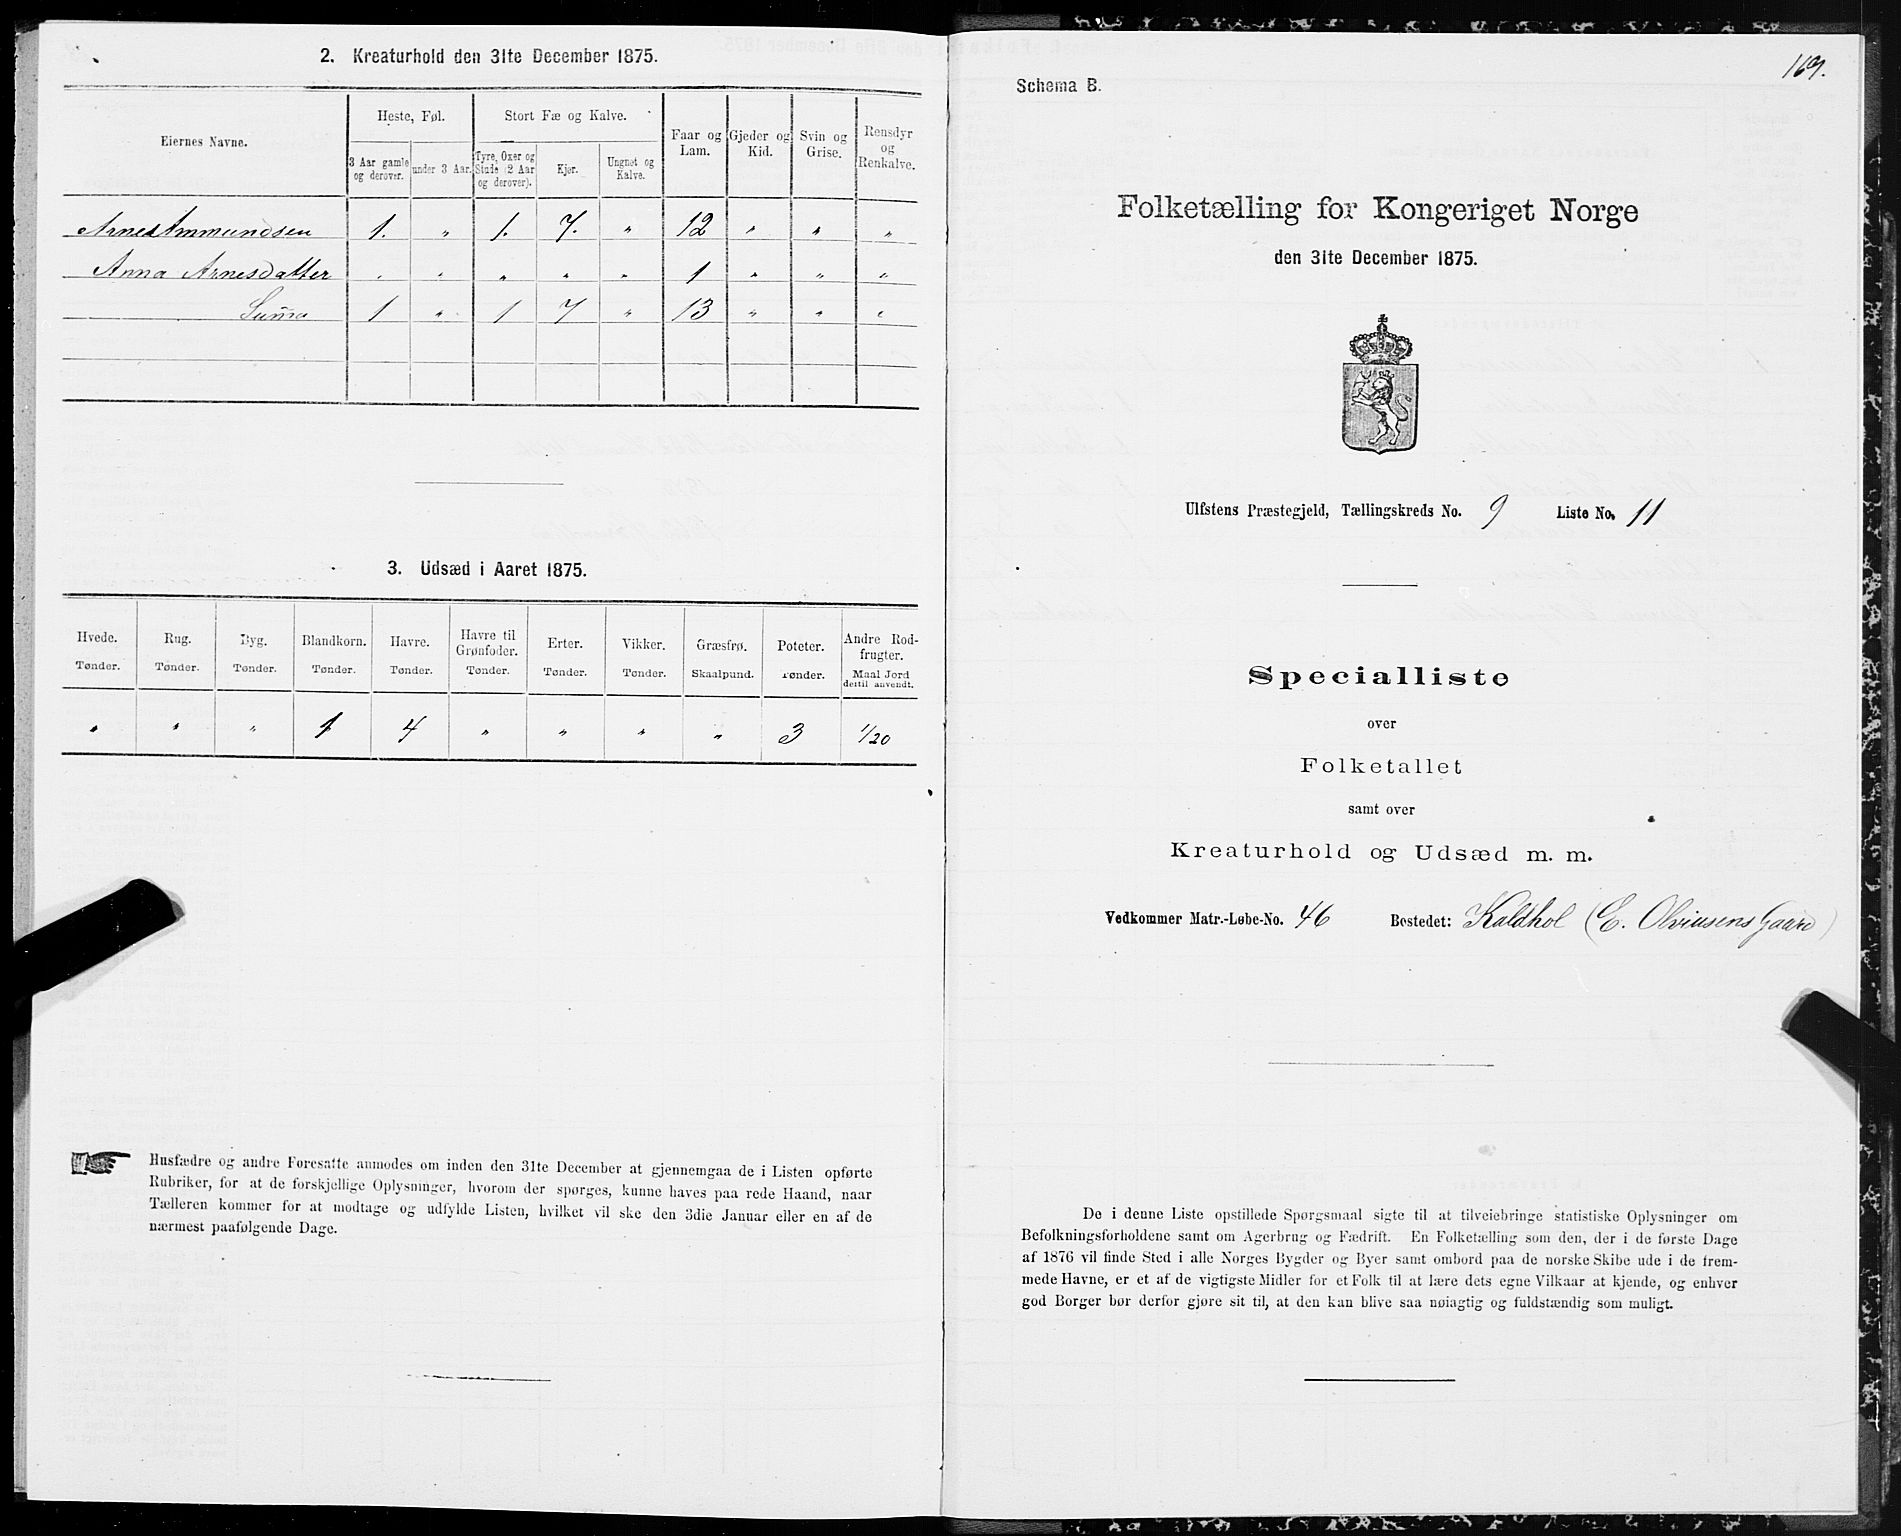 2. Kreaturhold den 31te December 1875.
Eiernes Navne.
Heste, Føl.
Stort Fæ og Kalve.
Faar og Lam.
Gjeder og Kid.
Svin og Grise.
Rensdyr og Renkalve.
3 Aar gamle og derover.
under 3 Aar.
Tyre, Oxer og Stude (2 Aar og derover).
Kjør.
Ungnøt og Kalve.
Arne Ammundsen 1. " 1. 7. " 12 " " "
Anna Arnesdatter " " " " " 1 " " "
Suma 1 " 1 7 " 13 " " "
3. Udsæd i Aaret 1875.
Hvede. Rug. Byg. Blandkorn. Havre. Havre til Grønfoder. Erter. Vikker. Græsfrø. Poteter. Andre Rodfrugter.
Tønder. Tønder. Tønder. Tønder. Tønder. Tønder. Tønder. Tønder. Skaalpund. Tønder. Maal Jord dertil anvendt.
" " " 1 4 " " " " 3 1/20
Husfædre og andre Foresatte anmodes om inden den 31te December at gjennemgaa de i Listen opførte
Rubriker, for at de forskjellige Oplysninger, hvorom der spørges, kunne haves paa rede Haand, naar
Tælleren kommer for at modtage og udfylde Listen, hvilket vil ske den 3die Januar eller en af de
nærmest paafølgende Dage.
169.
Schema B.
Folketælling for Kongeriget Norge
den 31te December 1875.
Ulfstens Præstegjeld, Tællingskreds No. 9 Liste No. 11
Specialliste
over
Folketallet
samt over
Kreaturhold og Udsæd m. m.
Vedkommer Matr.-Løbe-No. 46 Bostedet: Kaldhol (E. Olviusens Gaard)
De i denne Liste opstillede Spørgsmaal sigte til at tilveiebringe statistiske Oplysninger om
Befolkningsforholdene samt om Agerbrug og Fædrift. En Folketælling som den, der i de første Dage
af 1876 vil finde Sted i alle Norges Bygder og Byer samt ombord paa de norske Skibe ude i de frem-
mede Havne, er et af de vigtigste Midler for et Folk til at lære dets egne Vilkaar at kjende, og enhver
god Borger bør derfor gjøre sit til, at den kan blive saa nøiagtig og fuldstændig som muligt.